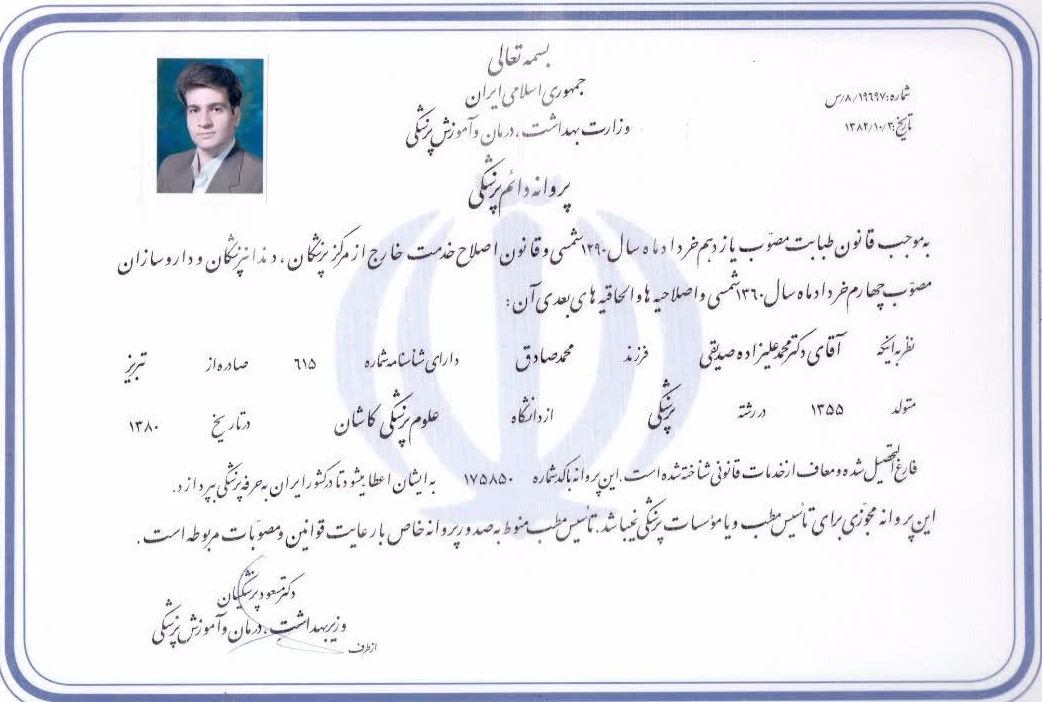 بسمه تعالی
جمهوری اسلامی ایران
وزارت بهداشت، درمان و آموزش پزشکی
شماره: ۸/۱۹۶۹۷/س
تاریخ: ۱۳۸۲/۱۰/۳
پروانه دائم پزشکی
به موجب قانون طبابت مصوّب یازدهم خرداد ماه سال ۱۲۹۰ شمسی و قانون اصلاح خدمت خارج از مرکز پزشکان، دندانپزشکان و داروسازان
مصوّب چهارم خرداد ماه سال ۱۳۶۰ شمسی و اصلاحیه ها و الحاقیه های بعدی آن:
نظر به اینکه آقای دکتر محمد علیزاده صدیقی فرزند محمدصادق دارای شناسنامه شماره ۶۱۵ صادره از تبریز
متولد ۱۳۵۵ در رشته پزشکی از دانشگاه علوم پزشکی کاشان در تاریخ ۱۳۸۰
فارغ التحصیل شده و معاف از خدمات قانونی شناخته شده است. این پروانه با کد شماره ۱۷۵۸۵۰ به ایشان اعطا میشود تا در کشور ایران به حرفه پزشکی بپردازد.
این پروانه مجوّزی برای تأسیس مطب و یا مؤسسات پزشکی نمیباشد. تأسیس مطب منوط به صدور پروانه خاص با رعایت قوانین و مصوّبات مربوطه است.
دکتر مسعود پزشکیان
وزیر بهداشت، درمان و آموزش پزشکی
از طرف